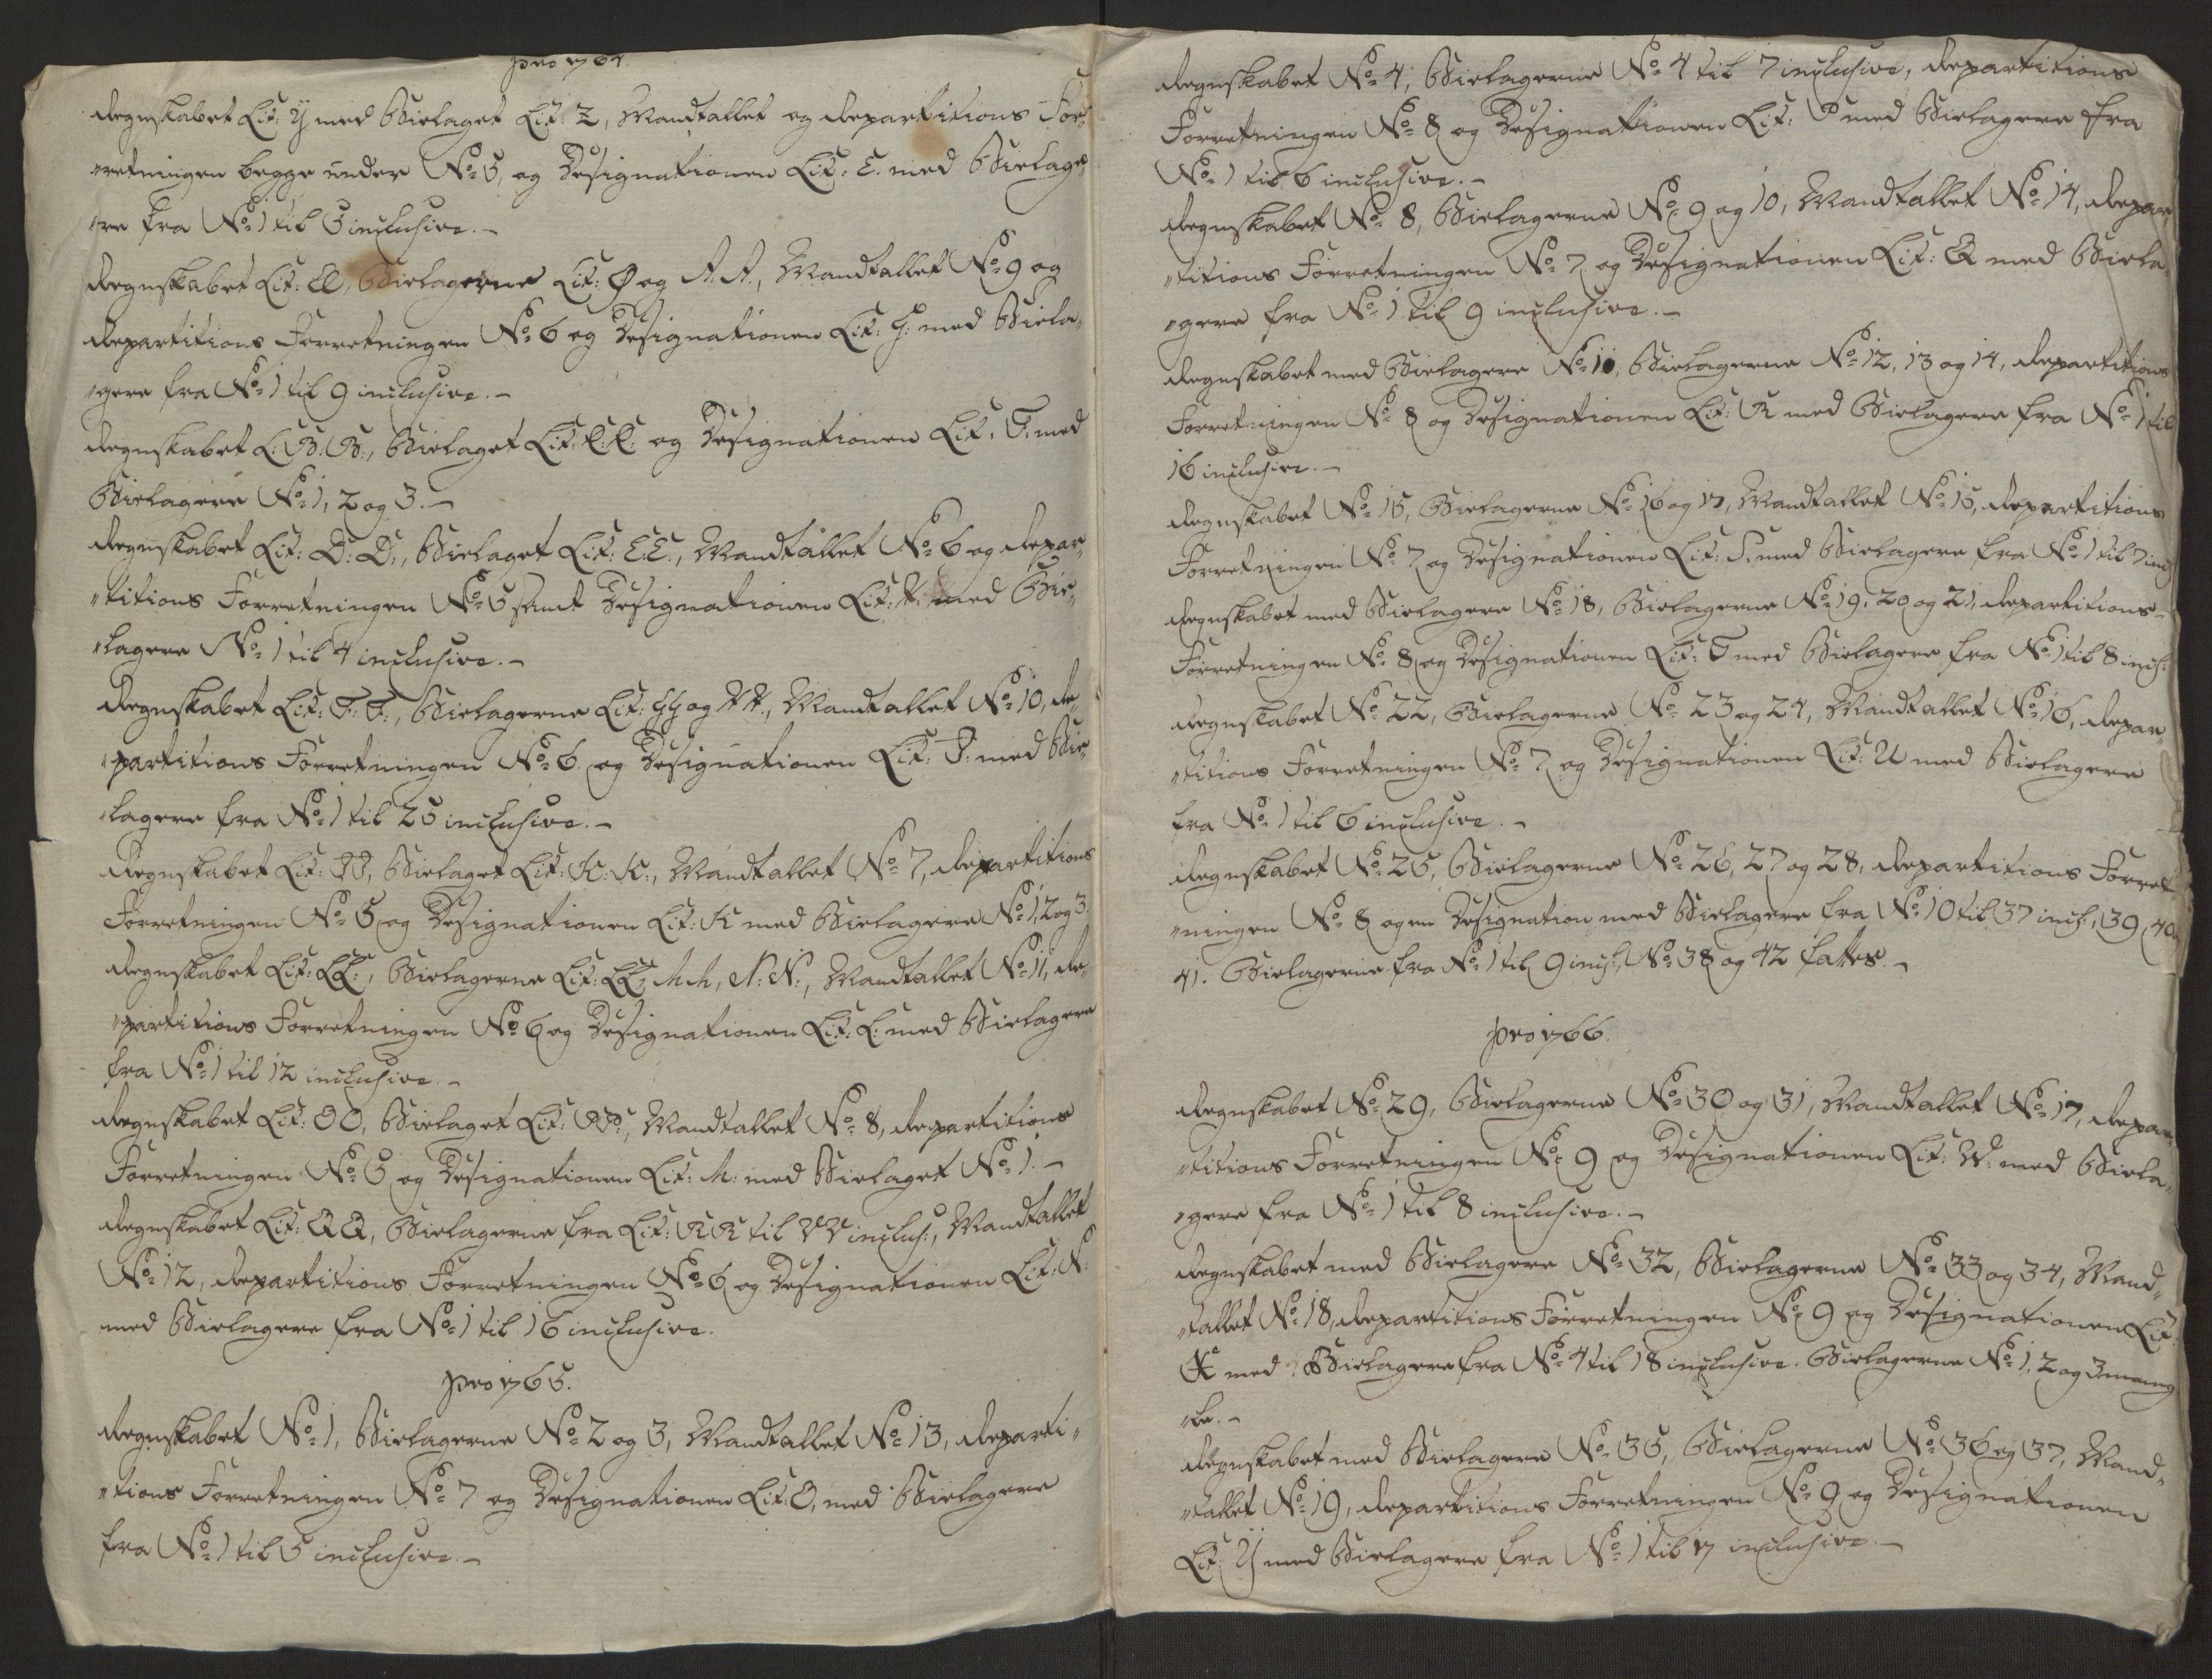 pro 1764.
Regnskabet Lit: Y med Bielaget Lit: Z, Mandtallet og Repartitions For,,
,,retningen begge under No 5, og Designationen Lit: E. med Bielage,,
,,re fra No 1 til 5 inclusive.-
Regnskabet Lit: Æ, Bielagerne Lit: Ø og A.A., Mandtallet No 9 og
Repartitions Forretningen No 6 og Designationen Lit: G: med Biela,,
,,gere fra No 1 til 9 inclusive.-
Regnskabet L: B.B., Bielaget Lit: C.C. og Designationen Lit. F. med
Bielagere No 1, 2 og 3.-
Regnskabet Lit: D: D:, Bielaget Lit: E.E., Mandtallet No 6 og Repar,,
,,titions Forretningen No 5 samt Designationen Lit: H. med Bie,,
,,lagere No 1 til 4 inclusive.-
Regnskabet Lit: F: F:, Bielagerne Lit: GG og HH., Mandtallet No 10, Re,,
,,partitions Forretningen No 6 og Designationen Lit: I: med Bie,,
,,lagere fra No 1 til 25 inclusive.-
Regnskabet Lit: II, Bielaget Lit: K: K:, Mandtallet No 7, Repartitions
Forretningen No 5 og Designationen Lit: K med Bielagere No 1, 2 og 3.
Regnskabet Lit: LL:, Bielagerne Lit: LL, MM, N: N:, Mandtallet No 11, Re,,
,,partitions Forretningen No 6 og Designationen Lit: L: med Bielagere
fra No 1 til 12 inclusive.-
Regnskabet Lit: OO, Bielaget Lit: PP:, Mandtallet No 8, Repartitions
Forretningen No 5 og Designationen Lit: M: med Bielaget No 1.-
Regnskabet Lit: QQ, Bielagerne fra Lit: RR til VV inclus:, Mandtallet
No 12, Repartitions Forretningen No 6 og Designationen Lit: N:
med Bielagere fra No 1 til 16 inclusive.
pro 1765.
Regnskabet No 1, Bielagerne No 2 og 3, Mandtallet No 13, Reparti,,
,,tions Forretningen No 7 og Designationen Lit: O, med Bielagere
fra No 1 til 5 inclusive.-
Regnskabet No 4, Bielagerne No 4 til 7 inclusive, Repartitions
Forretningen No 8 og Designationen Lit: P med Bielagere fra
No 1 til 6 inclusive.-
Regnskabet No 8, Bielagerne No 9 og 10, Mandtallet No 14, Repar,,
,,titions Forretningen No 7 og Designationen Lit: Q med Biela,,
,,gere fra No 1 til 9 inclusive.-
Regnskabet med Bielagere No 11, Bielagerne No 12, 13 og 14, Repartitions
Forretningen No 8 og Designationen Lit: R med Bielagere fra No 1 til
16 inclusive.-
Regnskabet No 15, Bielagerne No 16 og 17, Mandtallet No 15, Repartitions
Forretningen No 7 og Designationen Lit: S. med Bielagere fra No 1 til 7 incl
Regnskabet med Bielagere No 18, Bielagerne No 19, 20 og 21, Repartitions-
Forretningen No 8 og Designationen Lit: T med Bielagere fra No 1 til 8 incl:
Regnskabet No 22, Bielagerne No 23 og 24, Mandtallet No 16, Repar,,
,,titions Forretningen No 7 og Designationen Lit: U med Bielagere
fra No 1 til 6 inclusive.-
Regnskabet No 25, Bielagerne No 26, 27 og 28, Repartitions Forret
,,ningen No 8 og en Designation med Bielagere fra No 10 til 37 incl., 39, 40,
41. Bielagerne fra No 1 til 9 incl:, No 38 og 42 fattes.-
pro 1766.
Regnskabet No 29, Bielagerne No 30 og 31, Mandtallet No 17, Repar,,
,,titions Forretningen No 9 og Designationen Lit: W: med Biela,,
,,gere fra No 1 til 8 inclusive.-
Regnskabet med Bielagere No 32, Bielagerne No 33 og 34, Mand,,
,,tallet No 18, Repartitions Forretningen No 9 og Designationen Lit:
X med Bielagere fra No 4 til 18 inclusive. Bielagerne No 1, 2 og 3 mang
,,le.-
Regnskabet med Bielagere No 35, Bielagerne No 36 og 37, Mand,,
,,tallet No 19, Repartitions Forretningen No 9 og Designationen
Lit: Y med Bielagere fra No 1 til 17 inclusive.-